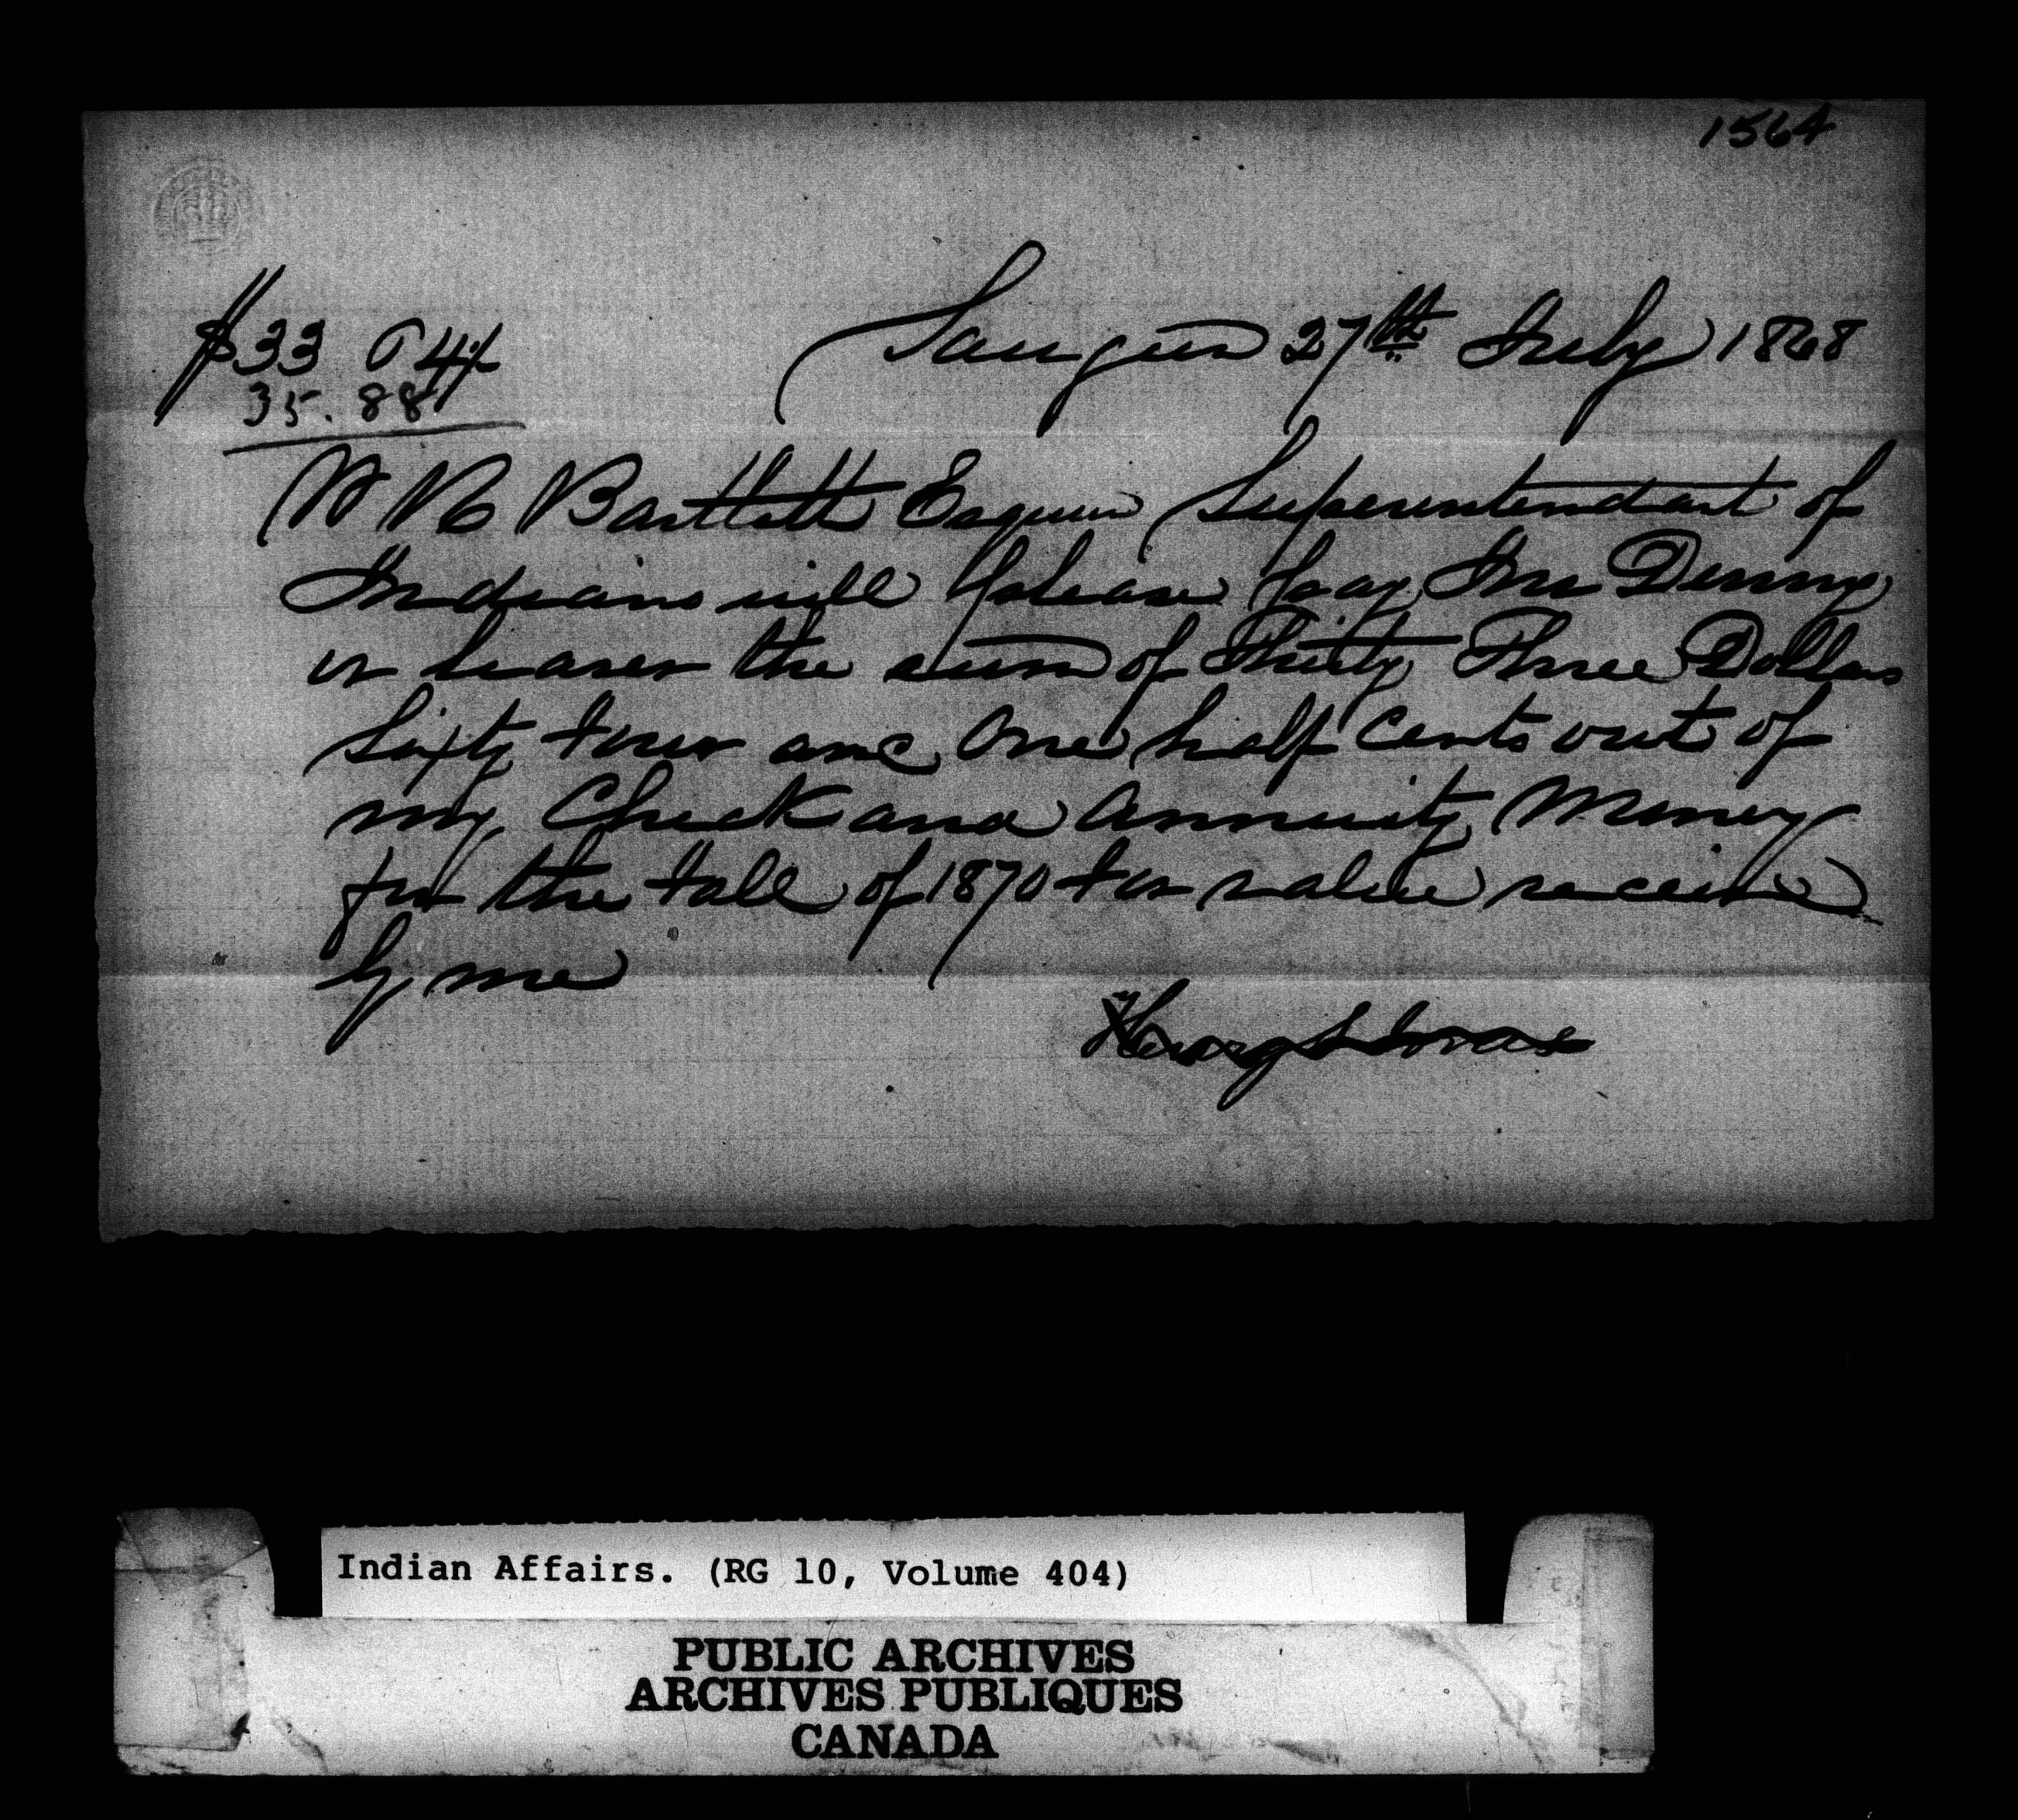 1564
$33 64½
35.88
Saugeen 27th July 1868
W R Bartlett Esquire Superintendant of
Indians will please pay Jno Denny
or bearer the sum of Thirty Three Dollars
Sixty four and One half Cents out of
my Check and annuity Money
for the fall of 1870 for value receive
by me
Henry
Indian Affairs. (RG 10, Volume 404)
PUBLIC ARCHIVES
ARCHIVES PUBLIQUES
CANADA